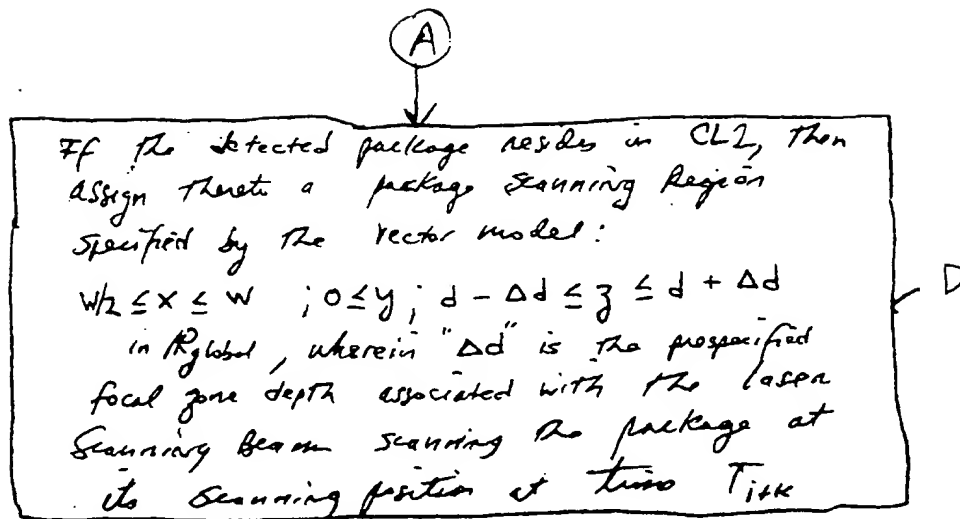 A
If the detected package resides in CL2, then
assign thereto a package scanning Region
specified by the vector model:
W/2 ≤ x ≤ W ; 0 ≤ y ; d - Δd ≤ z ≤ d + Δd
in Rglobal, wherein "Δd" is the prespecified
focal zone depth associated with the laser
Scanning Beam scanning the package at
its scanning position at time Ti+k
D